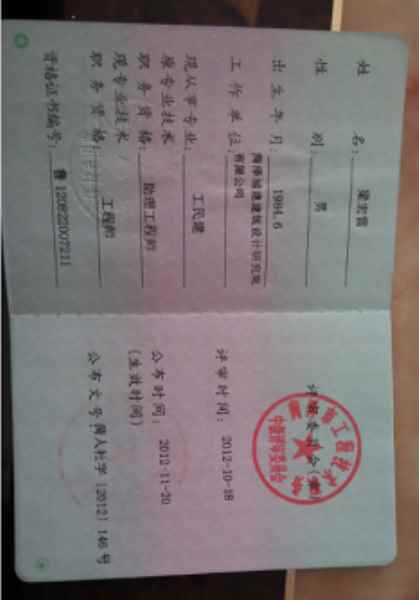 姓 名：梁宏雷
性 别：男
出生年月：1984.6
工作单位：菏泽城建建筑设计研究院
有限公司
现从事专业：工民建
原专业技术
职务资格：助理工程师
现专业技术
职务资格：工程师
资格证书编号：鲁120822007211
评审委员会(章)
中级评审委员会
评审时间：2012-10-18
公布时间：2012-11-20
(生效时间)
公布文号 菏人社字〔2012〕146号